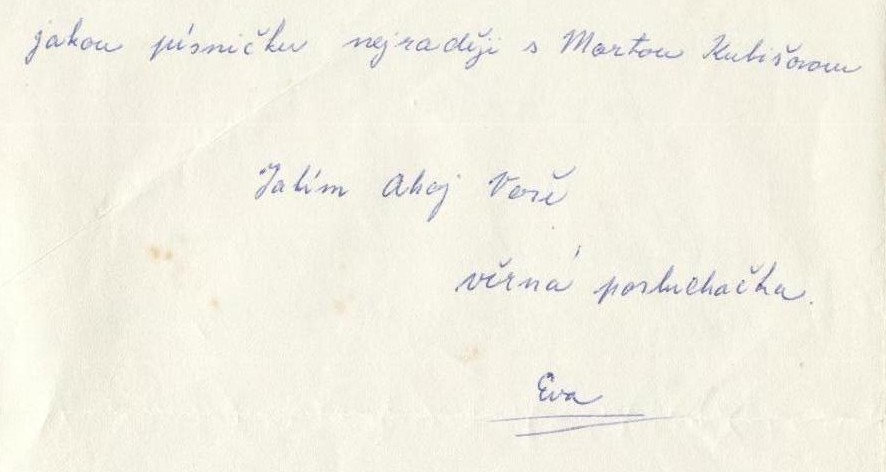 jakou písničku nejraději s Martou Kubišovou
Zatím Ahoj Vaše
věrná posluchačka.
Eva